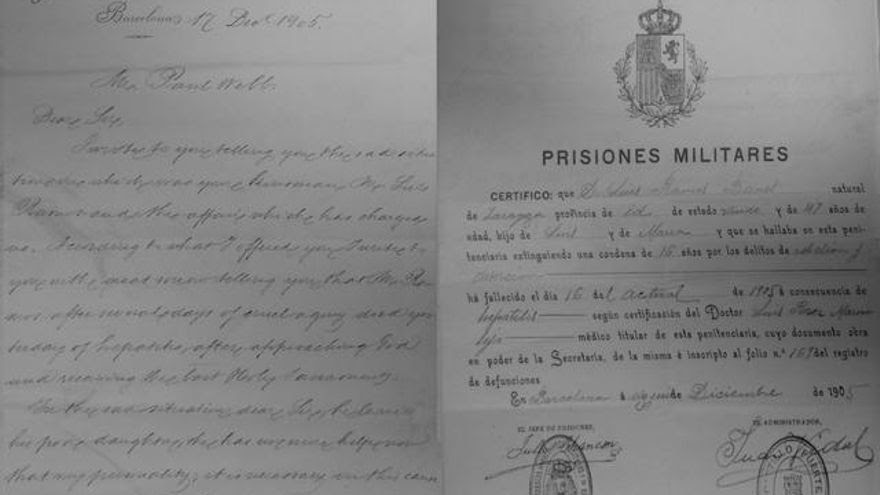 Barcelona 17 Dec. 1905.
Mr. Paul Webb.
Dear Sir,
I wrote to you telling you the sad situa
tion in which was your kinsman, Mr. Luis
Ramos and the affair which he has charged
me. According to what I offered you I write to
you with great sorrow telling you that Mr. Ra
mos, after several days of cruel agony died yes
terday of hepatitis, after approaching God
and receiving the last Holy Sacraments.
In this sad situation, dear Sir, he leaves
his poor daughter, she has no more help now
that my personality; it is necessary in this case
PRISIONES MILITARES
CERTIFICO: que D. Luis Ramos natural
de Zaragoza provincia de id. de estado viudo y de 47 años de
edad, hijo de Luis y de Maria y que se hallaba en esta peni-
tenciaria extinguiendo una condena de 16 años por los delitos de rebelion y
há fallecido el dia 16 del actual de 1905 á consecuencia de
hepatitis según certificación del Doctor Luis Marin
médico titular de esta penitenciaria, cuyo documento obra
en poder de la Secretaria, de la misma é inscripto al folio n.º 167 del registro
de defunciones
En Barcelona á de Diciembre de 1905
EL JEFE DE PRISIONES,
EL ADMINISTRADOR,
Juan Vidal
CASTILLO FUERTE